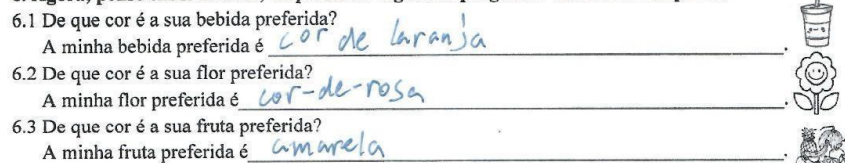 6.1 De que cor é a sua bebida preferida?
A minha bebida preferida é cor de laranja.
6.2 De que cor é a sua flor preferida?
A minha flor preferida é cor-de-rosa.
6.3 De que cor é a sua fruta preferida?
A minha fruta preferida é amarela.